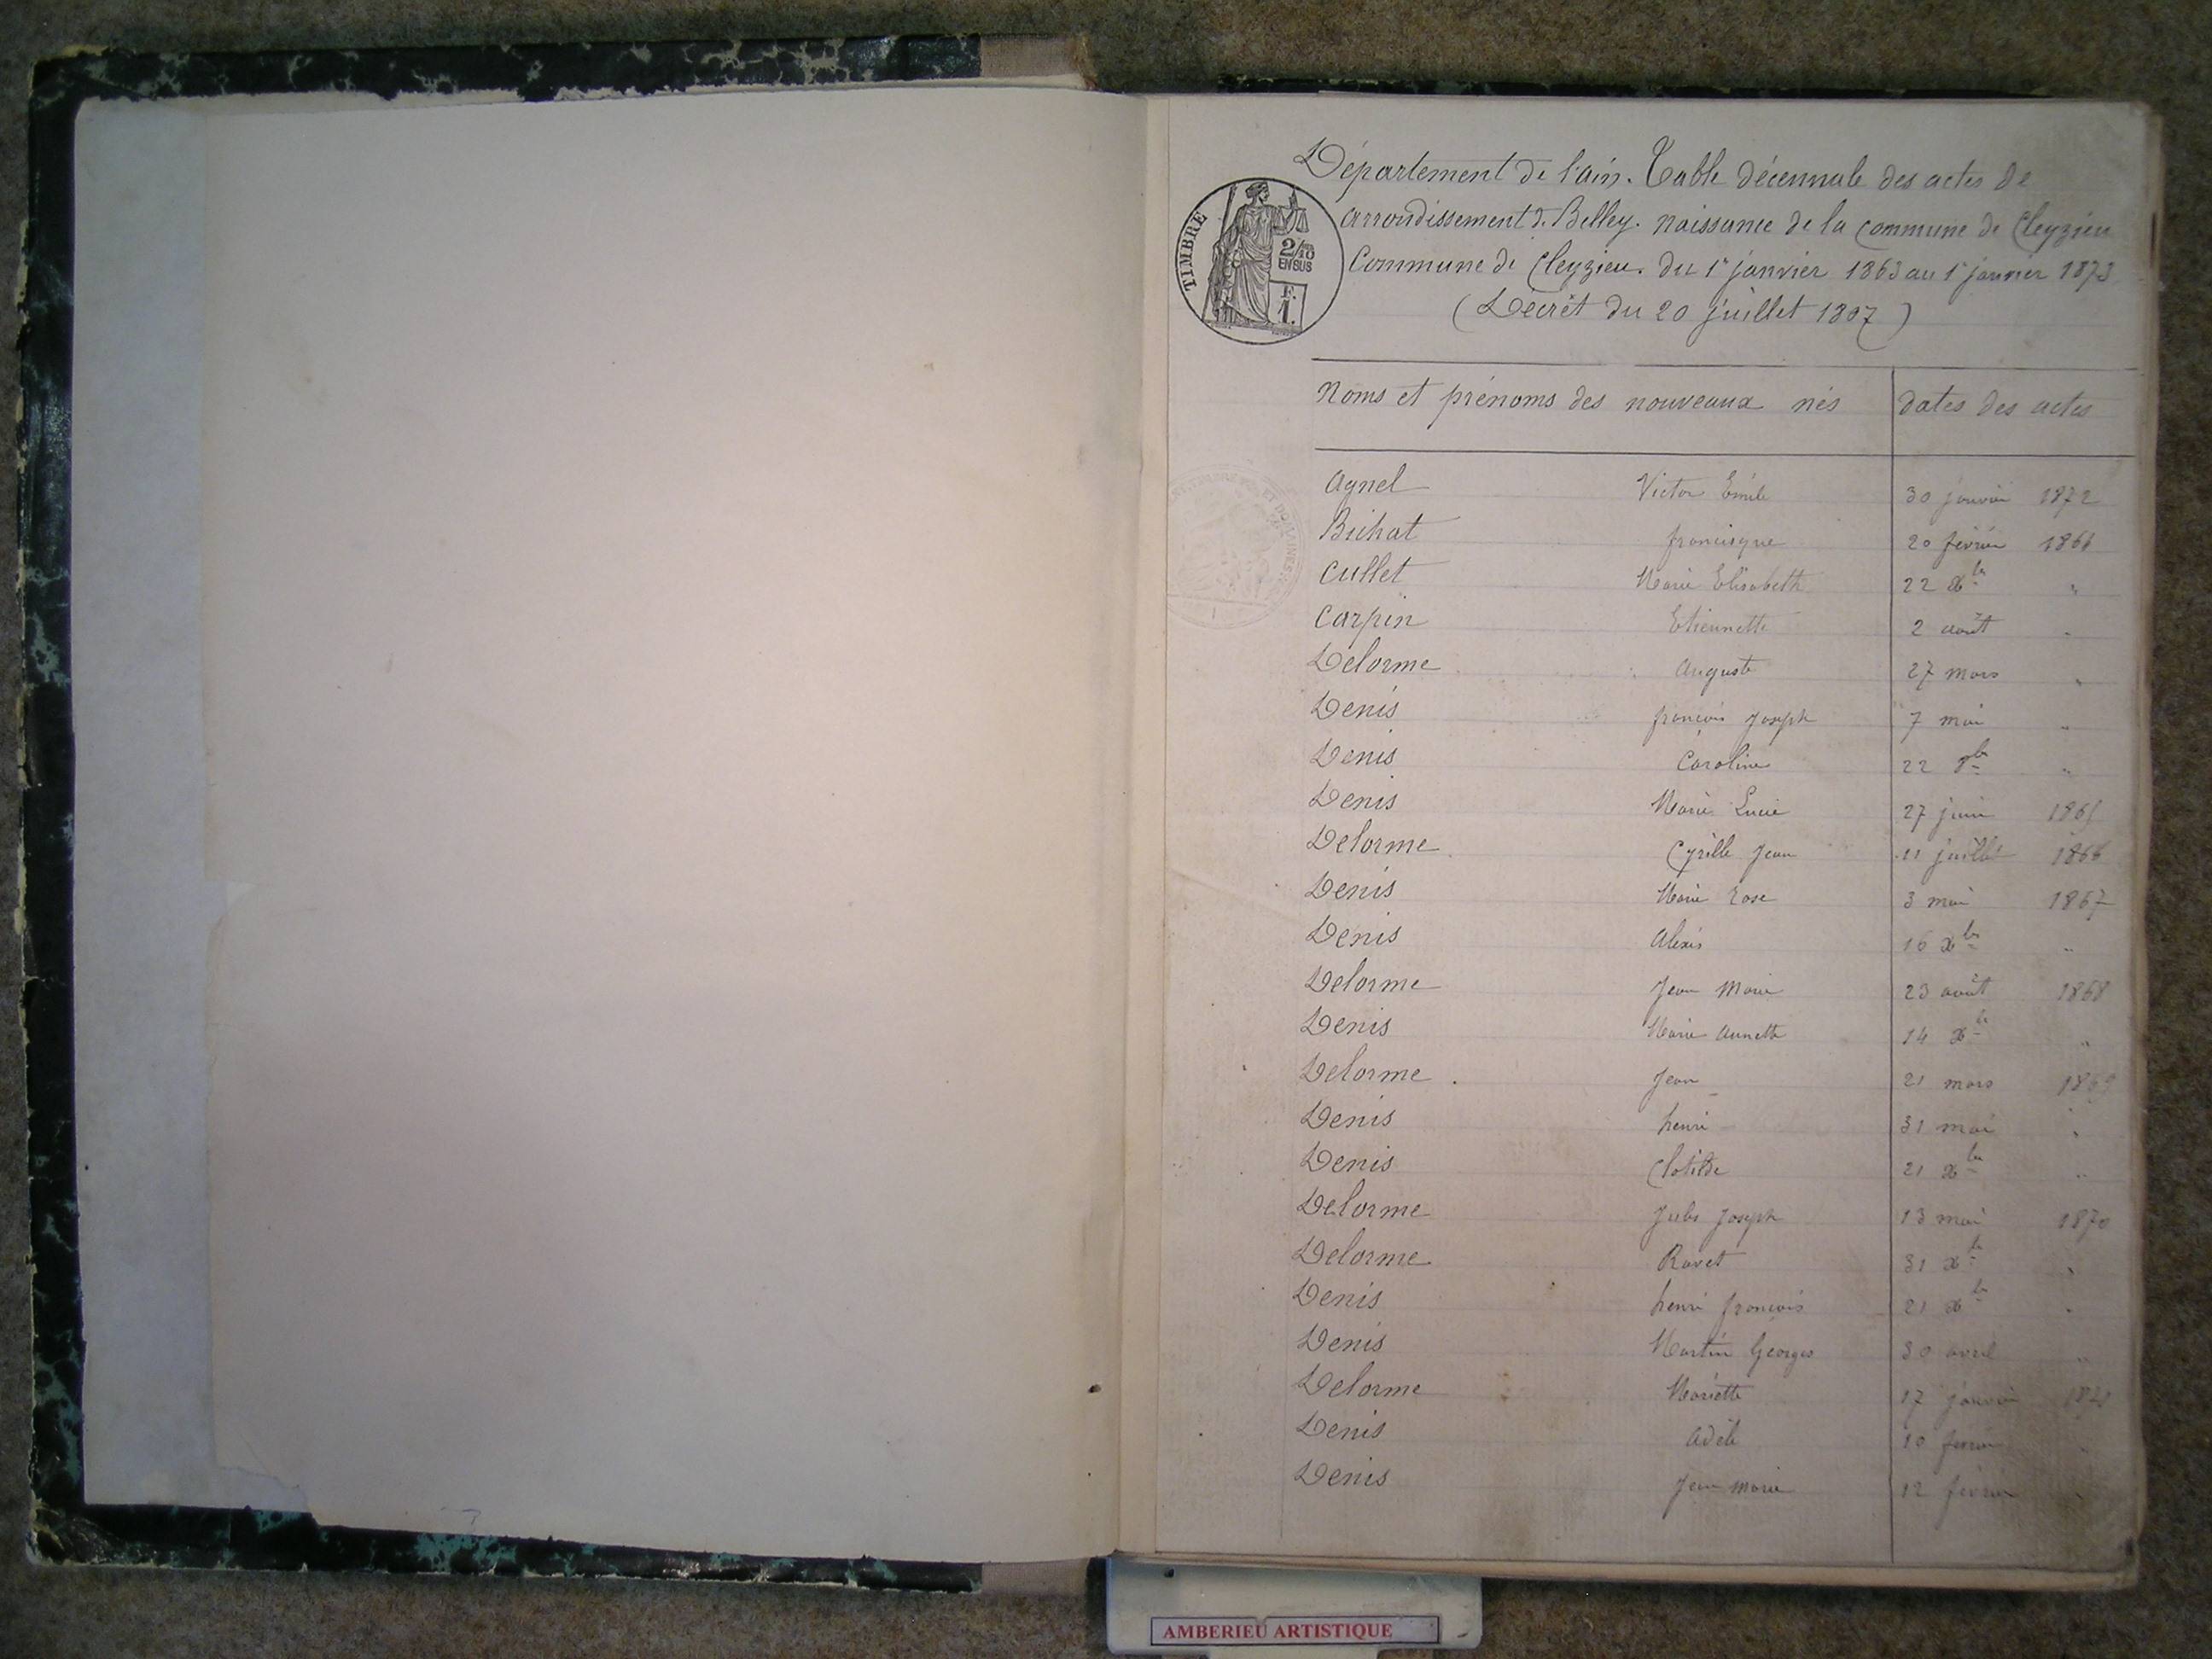 Département de l'ain. Table décennale des actes de
arrondissement de Belley. naissance de la commune de Cleyzieu
Commune de Cleyzieu. du 1er janvier 1863 au 1er janvier 1873
(Décrêt du 20 juillet 1807)
TIMBRE
2/10
EN SUS
F.
1.
Noms et prénoms des nouveaux nés dates des actes
Agnel Victor Emile 30 janvier 1872
Bichat francisque 20 février
Cullet Marie Elisabeth 22 xbre "
Carpin Etiennette 2 août "
Delorme Auguste 27 mars "
Denis françois Joseph 7 mai "
Denis Caroline 22 "
Denis Marie Lucie 27 juin 1865
Delorme Cyrille Jean 11 juillet 1866
Denis Marie Rose 3 mai 1867
Denis Alexis 16 xbre "
Delorme Jean Marie 23 août 1868
Denis Marie Annette 14 xbre "
Delorme Jean 21 mars 1869
Denis henri 31 mai "
Denis Clotilde 21 xbre "
Delorme Jules Joseph 13 mai 1870
Delorme Ravet 31 xbre "
Denis henri françois 21 xbre "
Denis Martin Georges 30 avril "
Delorme Mariette 17 janvier
Denis Adèle 10 février "
Denis Jean Marie 12 février "
AMBERIEU ARTISTIQUE